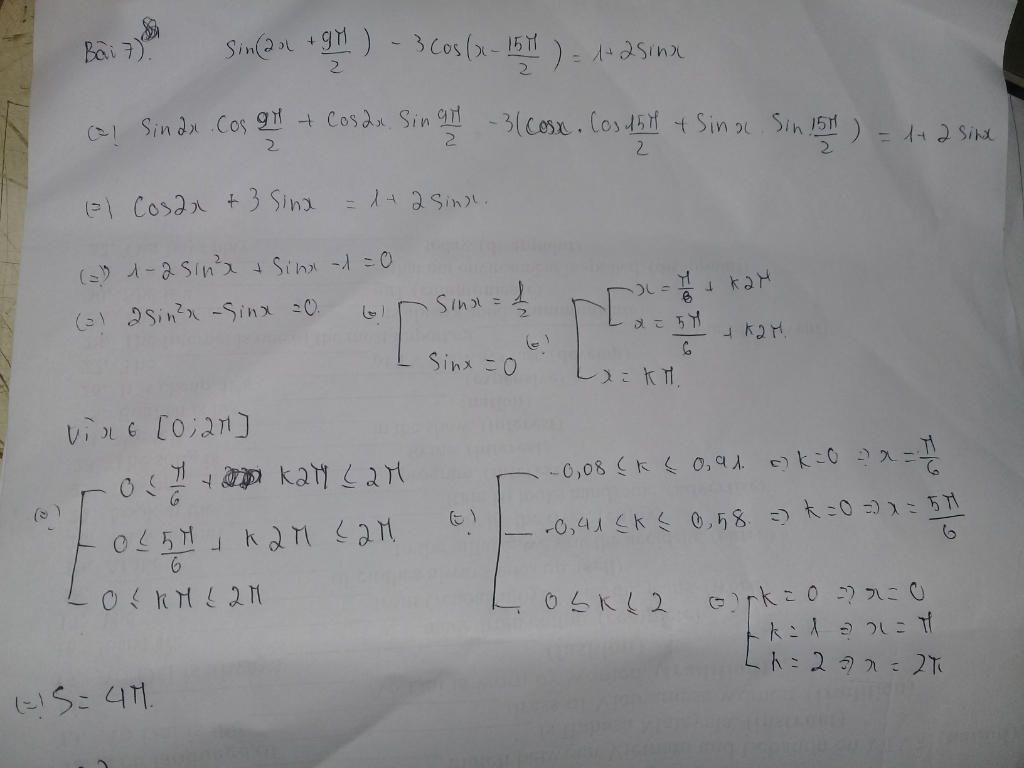 Bài 7). Sin(2x + 9π/2) - 3cos(x - 15π/2) = 1+2sinx
(=) Sin2x . Cos 9π/2 + Cos2x . Sin 9π/2 - 3(cosx . Cos 15π/2 + Sinx . Sin 15π/2) = 1+ 2 Sinx
(=) Cos2x + 3 Sinx = 1+ 2 Sinx.
(=) 1 - 2 Sin²x + Sinx - 1 = 0
(=) 2Sin²x - Sinx = 0. (=) [ Sinx = 1/2 ; Sinx = 0 (=) [ x = π/6 + k2π ; x = 5π/6 + k2π. ; x = kπ.
Vì x ∈ [0;2π]
(=) [ 0 ≤ π/6 + k2π ≤ 2π (=) [ -0,08 ≤ k ≤ 0,91. => k=0 => x = π/6
0 ≤ 5π/6 + k2π ≤ 2π. -0,41 ≤ k ≤ 0,58. => k=0 => x = 5π/6
0 ≤ kπ ≤ 2π 0 ≤ k ≤ 2 (=) [ k = 0 => x = 0
k = 1 => x = π
k = 2 => x = 2π
(=) S = 4π.